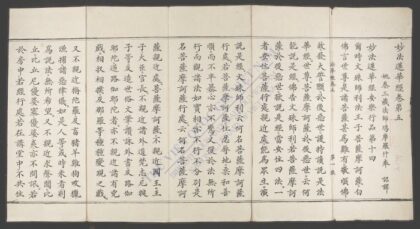 妙法蓮華經卷第五
姚秦三藏法師鳩摩羅什奉 詔譯
妙法蓮華經安樂行品第十四
爾時文殊師利法王子菩薩摩訶薩白
佛言世尊是諸菩薩甚為難有敬順佛
故發大誓願於後惡世護持讀說是法
華經世尊菩薩摩訶薩於後惡世云何
能說是經佛告文殊師利若菩薩摩訶
薩於後惡世欲說是經當安住四法一
者安住菩薩行處親近處能為眾生演
說是經文殊師利云何名菩薩摩訶薩
行處若菩薩摩訶薩住忍辱地柔和善
順而不卒暴心亦不驚又復於法無所
行而觀諸法如實相亦不行不分別是
名菩薩摩訶薩行處云何名菩薩摩訶
薩親近處菩薩摩訶薩不親近國王王
子大臣官長不親近諸外道梵志尼揵
子等及造世俗文筆讚詠外書及路伽
耶陀逆路伽耶陀者亦不親近諸有兇
戲相扠相撲及那羅等種種變現之戲
又不親近旃陀羅及畜豬羊雞狗畋獵
漁捕諸惡律儀如是人等或時來者則
為說法無所悕望又不親近求聲聞比
丘比丘尼優婆塞優婆夷亦不問訊若
於房中若經行處若在講堂中不共住